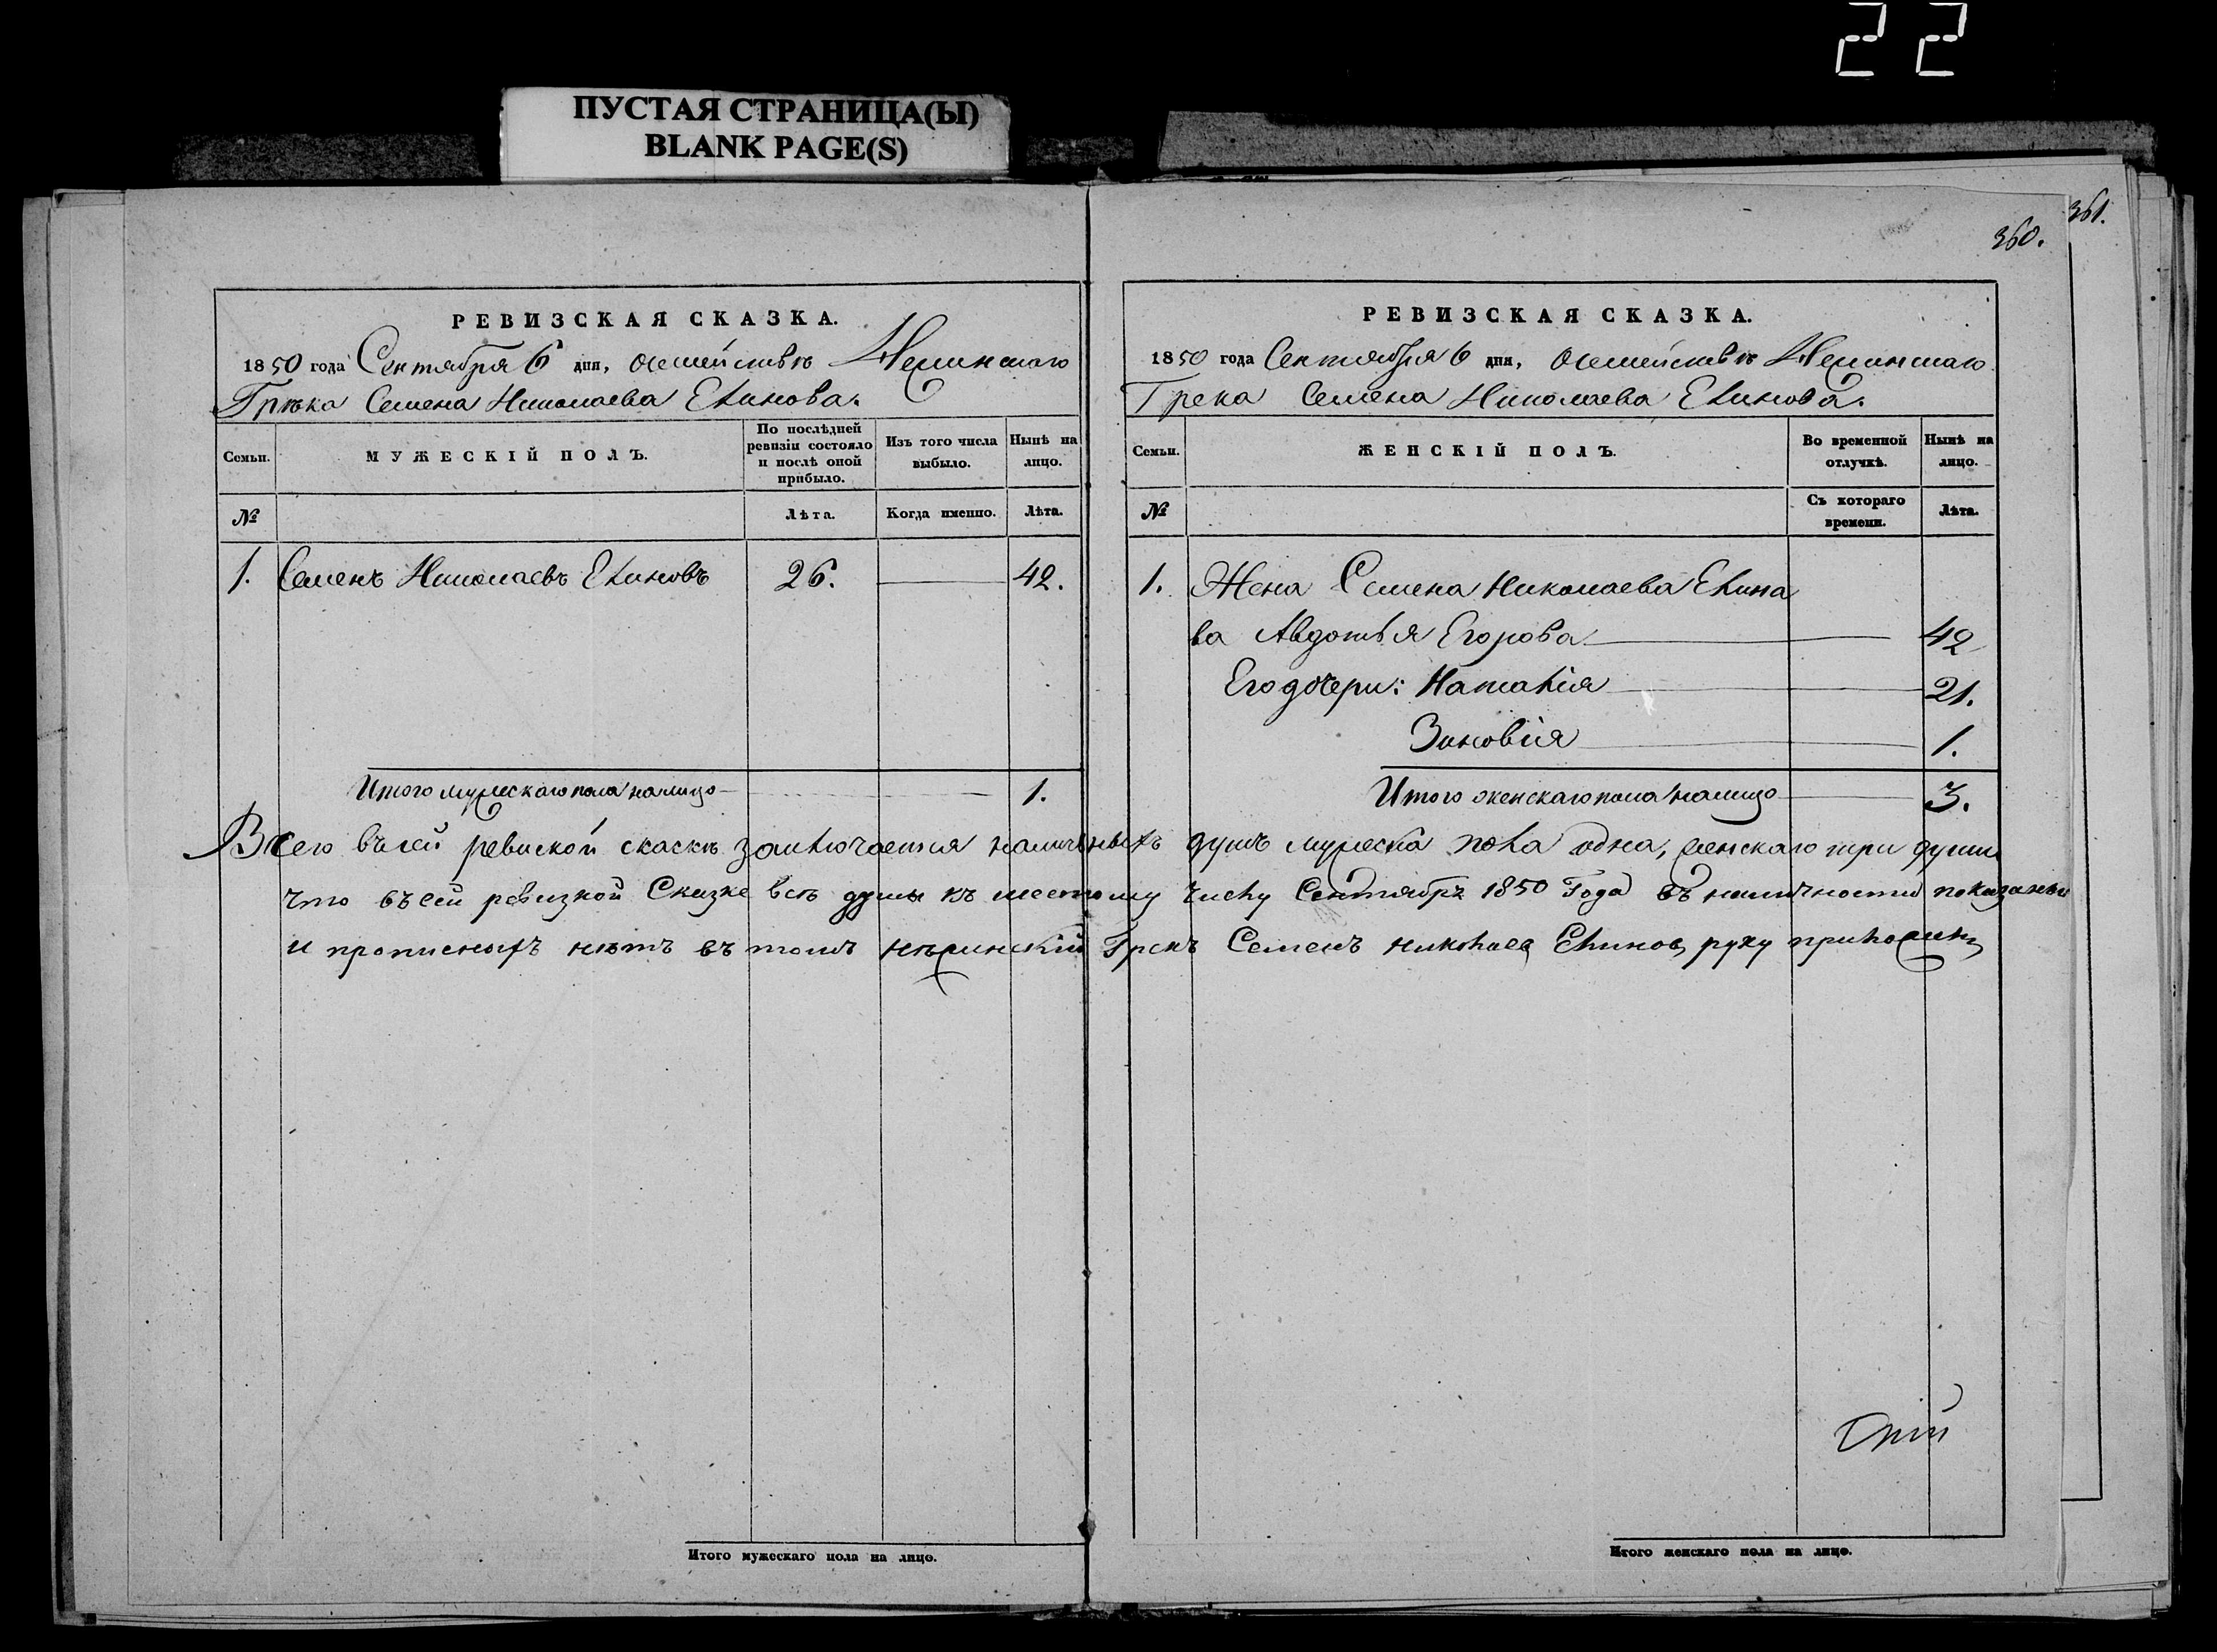 22
ПУСТАЯ СТРАНИЦА(Ы)
BLANK PAGE(S)
361.
360.
РЕВИЗСКАЯ СКАЗКА.
1850 года Сентября 6 дня, осемействѣ Нежинскаго
Грѣка Семена Николаева Елинова.
Семьи.
МУЖЕСКІЙ ПОЛЪ.
По послѣдней ревизіи состояло и послѣ оной прибыло.
Изъ того числа выбыло.
Нынѣ на лицо.
№
Лѣта.
Когда именно.
Лѣта.
1. Семенъ Николаевъ Елиновъ 26. 42.
Итого мужескаго пола налицо 1.
РЕВИЗСКАЯ СКАЗКА.
1850 года Сентября 6 дня, осемействѣ Нежинскаго
Грека Семена Николаева Елинова.
Семьи.
ЖЕНСКІЙ ПОЛЪ.
Во временной отлучкѣ.
Нынѣ на лицо.
№
Съ котораго времени.
Лѣта.
1. Жена Семена Николаева Елина
ва Авдотья Егорова 42
Его дочери: Наталія 21.
Зиновія 1.
Итого женскаго пола налицо 3.
Всего въсей ревиской скаскѣ заключается наличныхъ душъ мужеска пола одна, женскаго три души
что въсей ревизкой Сказке всѣ душы къ шестому числу Сентябрѣ 1850 Года въ наличности показаны
и прописныхъ нѣтъ въ томъ нѣжинскій Грекъ Семенъ николаев Елинов руку приложилъ
Итого мужескаго пола на лицо.
Итого женскаго пола на лицо.